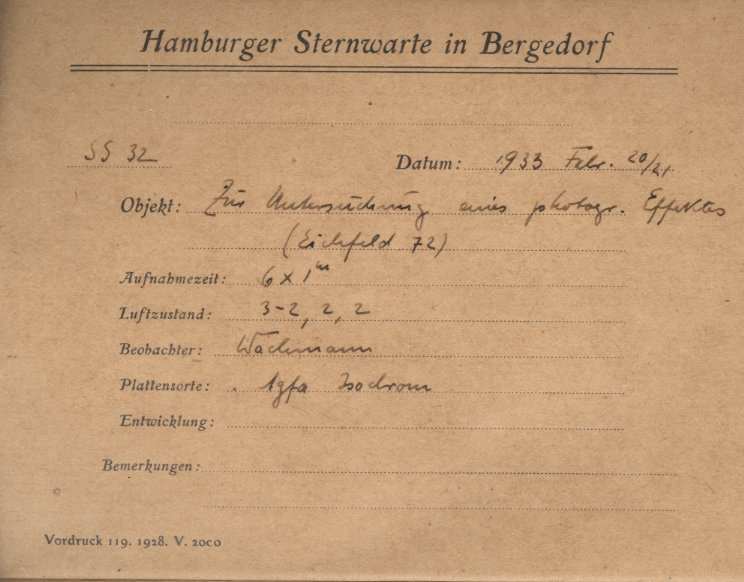 Hamburger Sternwarte in Bergedorf
SS 32 Datum: 1933 Febr. 20/21
Objekt: Zur Untersuchung eines photogr. Effektes
(Eichfeld 72)
Aufnahmezeit: 6 x 1m
Luftzustand: 3-2, 2, 2
Beobachter: Wachmann
Plattensorte: Agfa Isochrom
Entwicklung:
Bemerkungen:
Vordruck 119. 1928. V. 2000